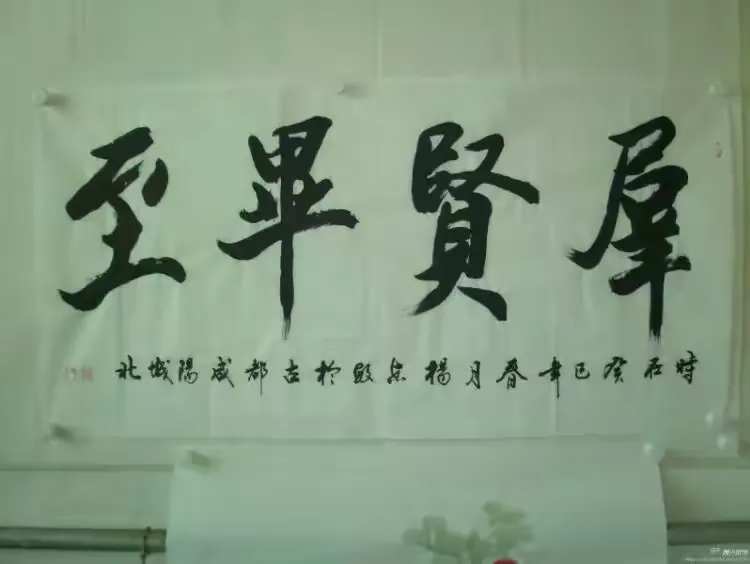 羣賢畢至
時在癸巳年春月楊忠毅於古都咸陽城北